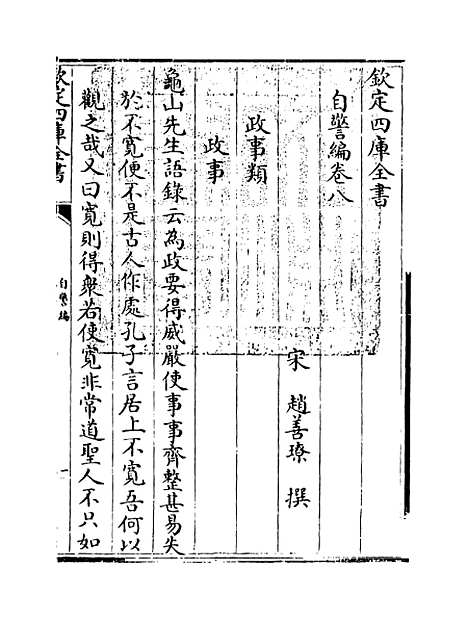 欽定四庫全書
自警編卷八
宋 趙善璙 撰
政事類
政事
龜山先生語錄云為政要得威嚴使事事齊整甚易失
於不寛便不是古人作處孔子言居上不寛吾何以
觀之哉又曰寛則得衆若使寛非常道聖人不只如
欽定四庫全書
自警編
一